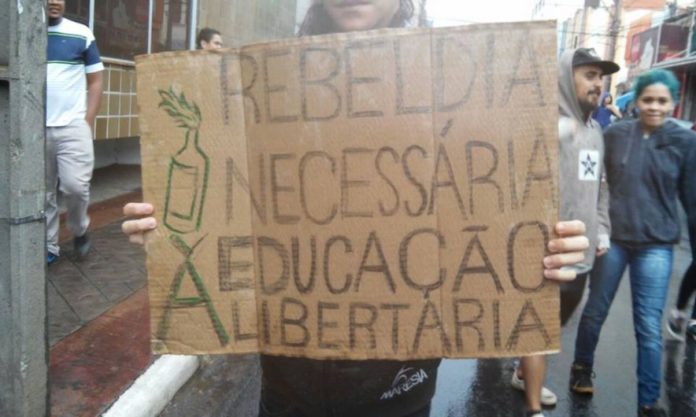 REBELDIA
NECESSÁRIA
EDUCAÇÃO
LIBERTÁRIA
MARESIA